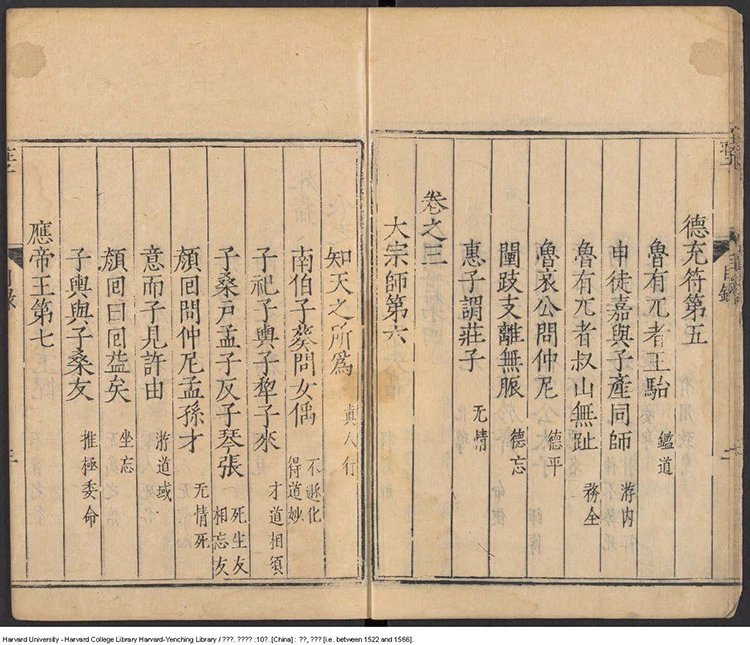 德充符第五
魯有兀者王駘 鑑道
申徒嘉與子產同師 游内
魯有兀者叔山無趾 務全
魯哀公問仲尼 德平
闉跂支離無脤 德忘
惠子謂莊子 无情
卷之三
大宗師第六
知天之所爲 眞人行
南伯子葵問女偊 不遯化 得道妙
子祀子輿子犂子來 才道相須
子桑戸孟子反子琴張 死生友 相忘友
顏回問仲尼孟孫才 无情死
意而子見許由 游道域
顏回曰回益矣 坐忘
子輿與子桑友 推極委命
應帝王第七
目錄
Harvard University - Harvard College Library Harvard-Yenching Library / ???. ???? :10?. [China] : ??, ??? [i.e. between 1522 and 1566].